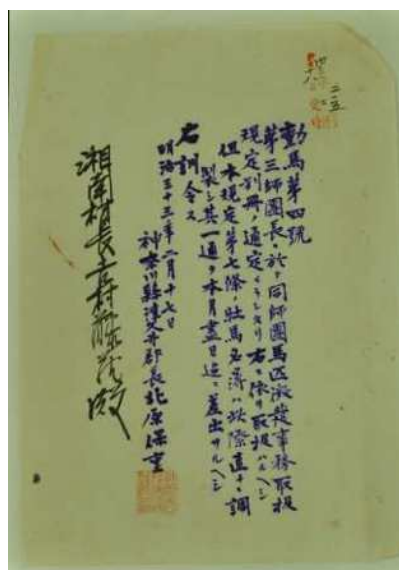 動馬第四號
第三師團長ニ於テ同師團馬匹徴發事務取扱
規定別冊ノ通定メラレタリ右ニ依リ取扱ハルヘシ
但本規定第七條ノ牡馬名簿ハ此際直ニ調
製シ其一通ヲ本月盡日迄ニ差出サルヘシ
右訓令ス
明治三十三年二月十七日
神奈川縣津久井郡長北原保重
湘南村長 殿